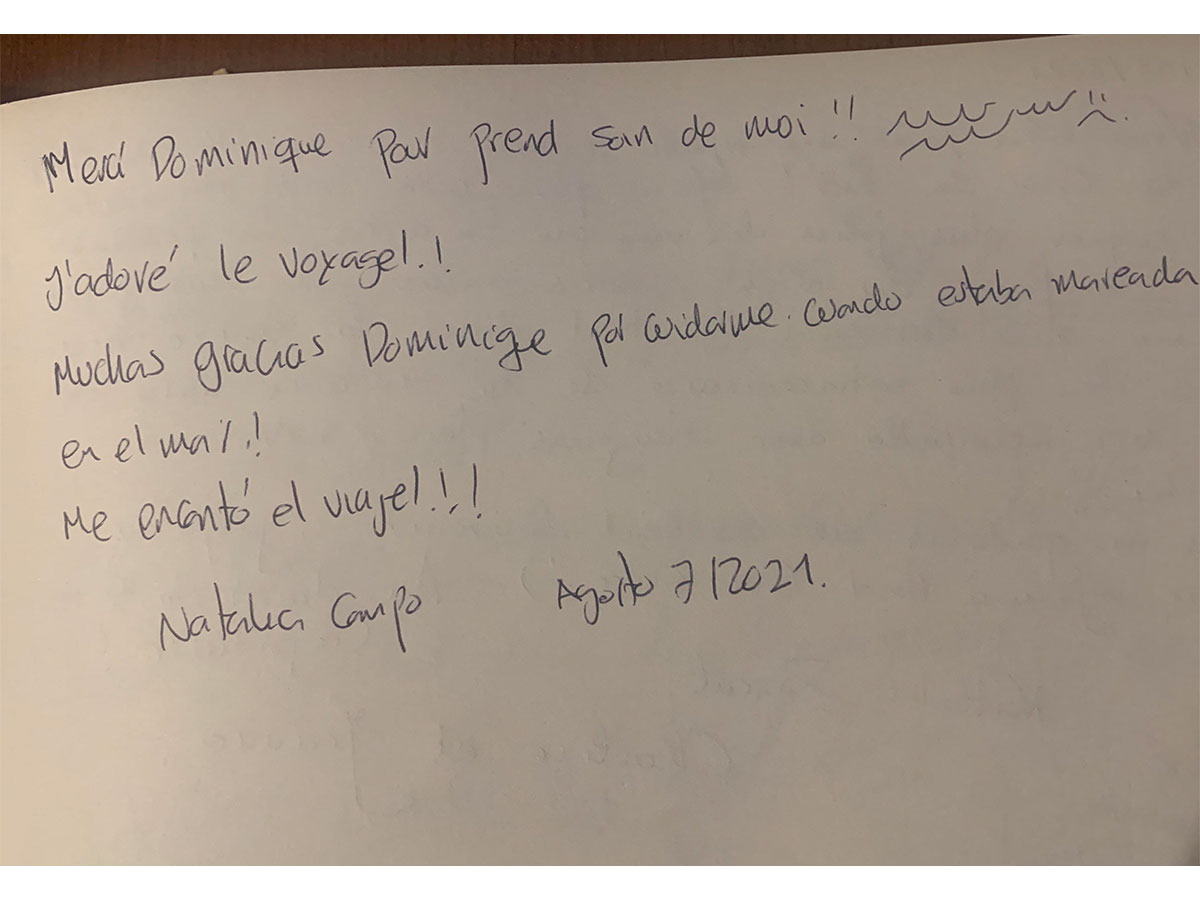 Merci Dominique par prend soin de moi!!
J'adoré le voyage!.!
Muchas gracias Dominiqe por cuidarme. cuando estaba mareada
en el mar.!
Me encantó el viaje!!!
Natalia Campo Agosto 7/2021.